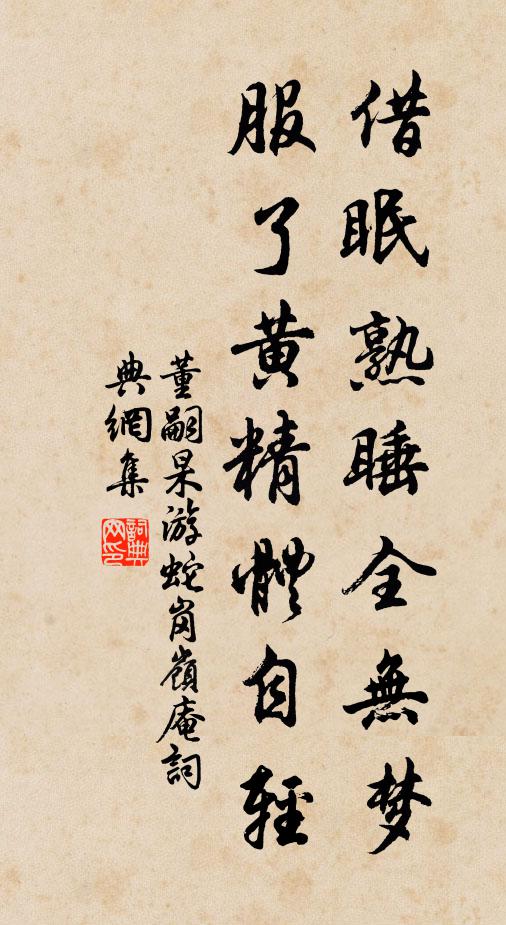 借眠熟睡全無梦
服了黄精體自輕
董嗣杲游蛇岗嶺庵詞
典網集
詞典網印